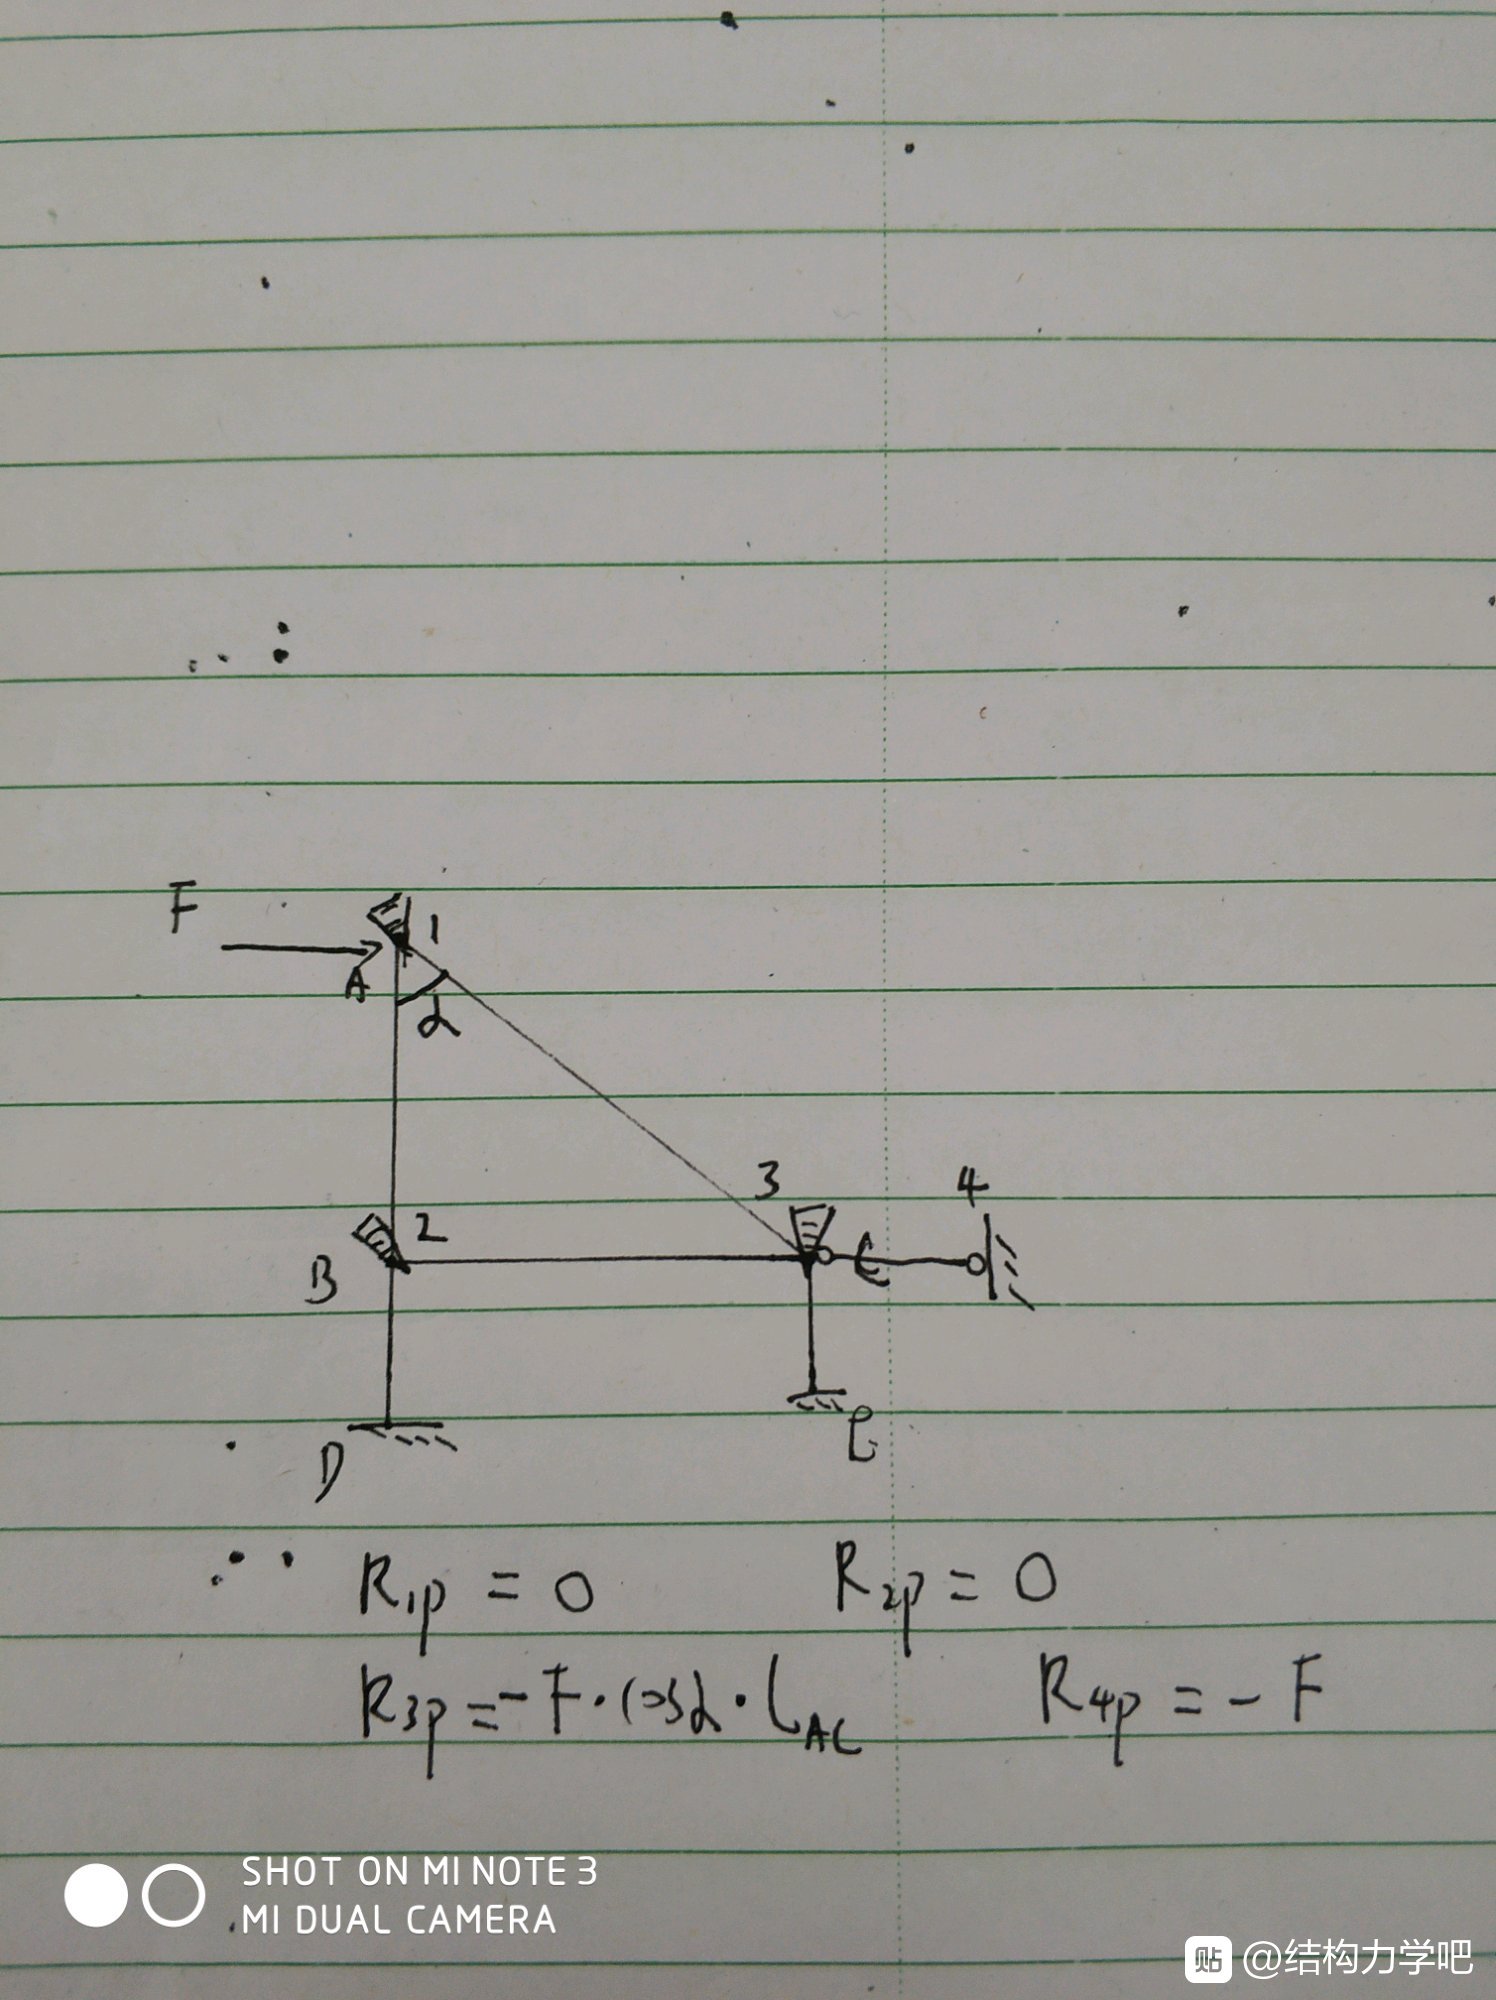 F
1
A
α
3
4
2
B
C
D
E
∴ R₁p = 0 R₂p = 0
R₃p = -F·cosα·L_AC R₄p = - F
SHOT ON MI NOTE 3
MI DUAL CAMERA
贴 @结构力学吧